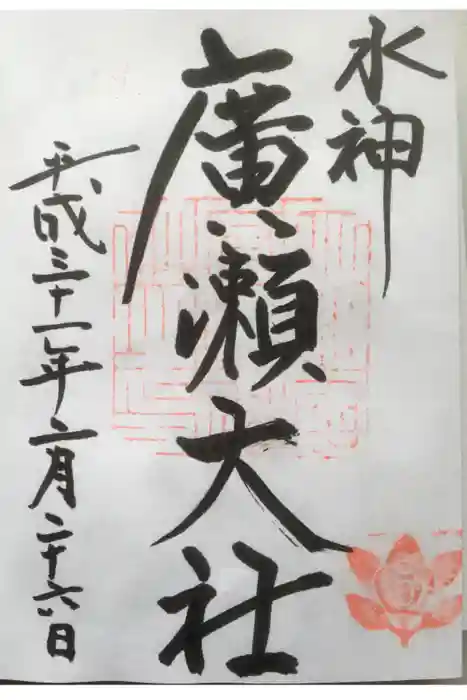 水神
廣瀬大社
平成三十一年二月二十六日